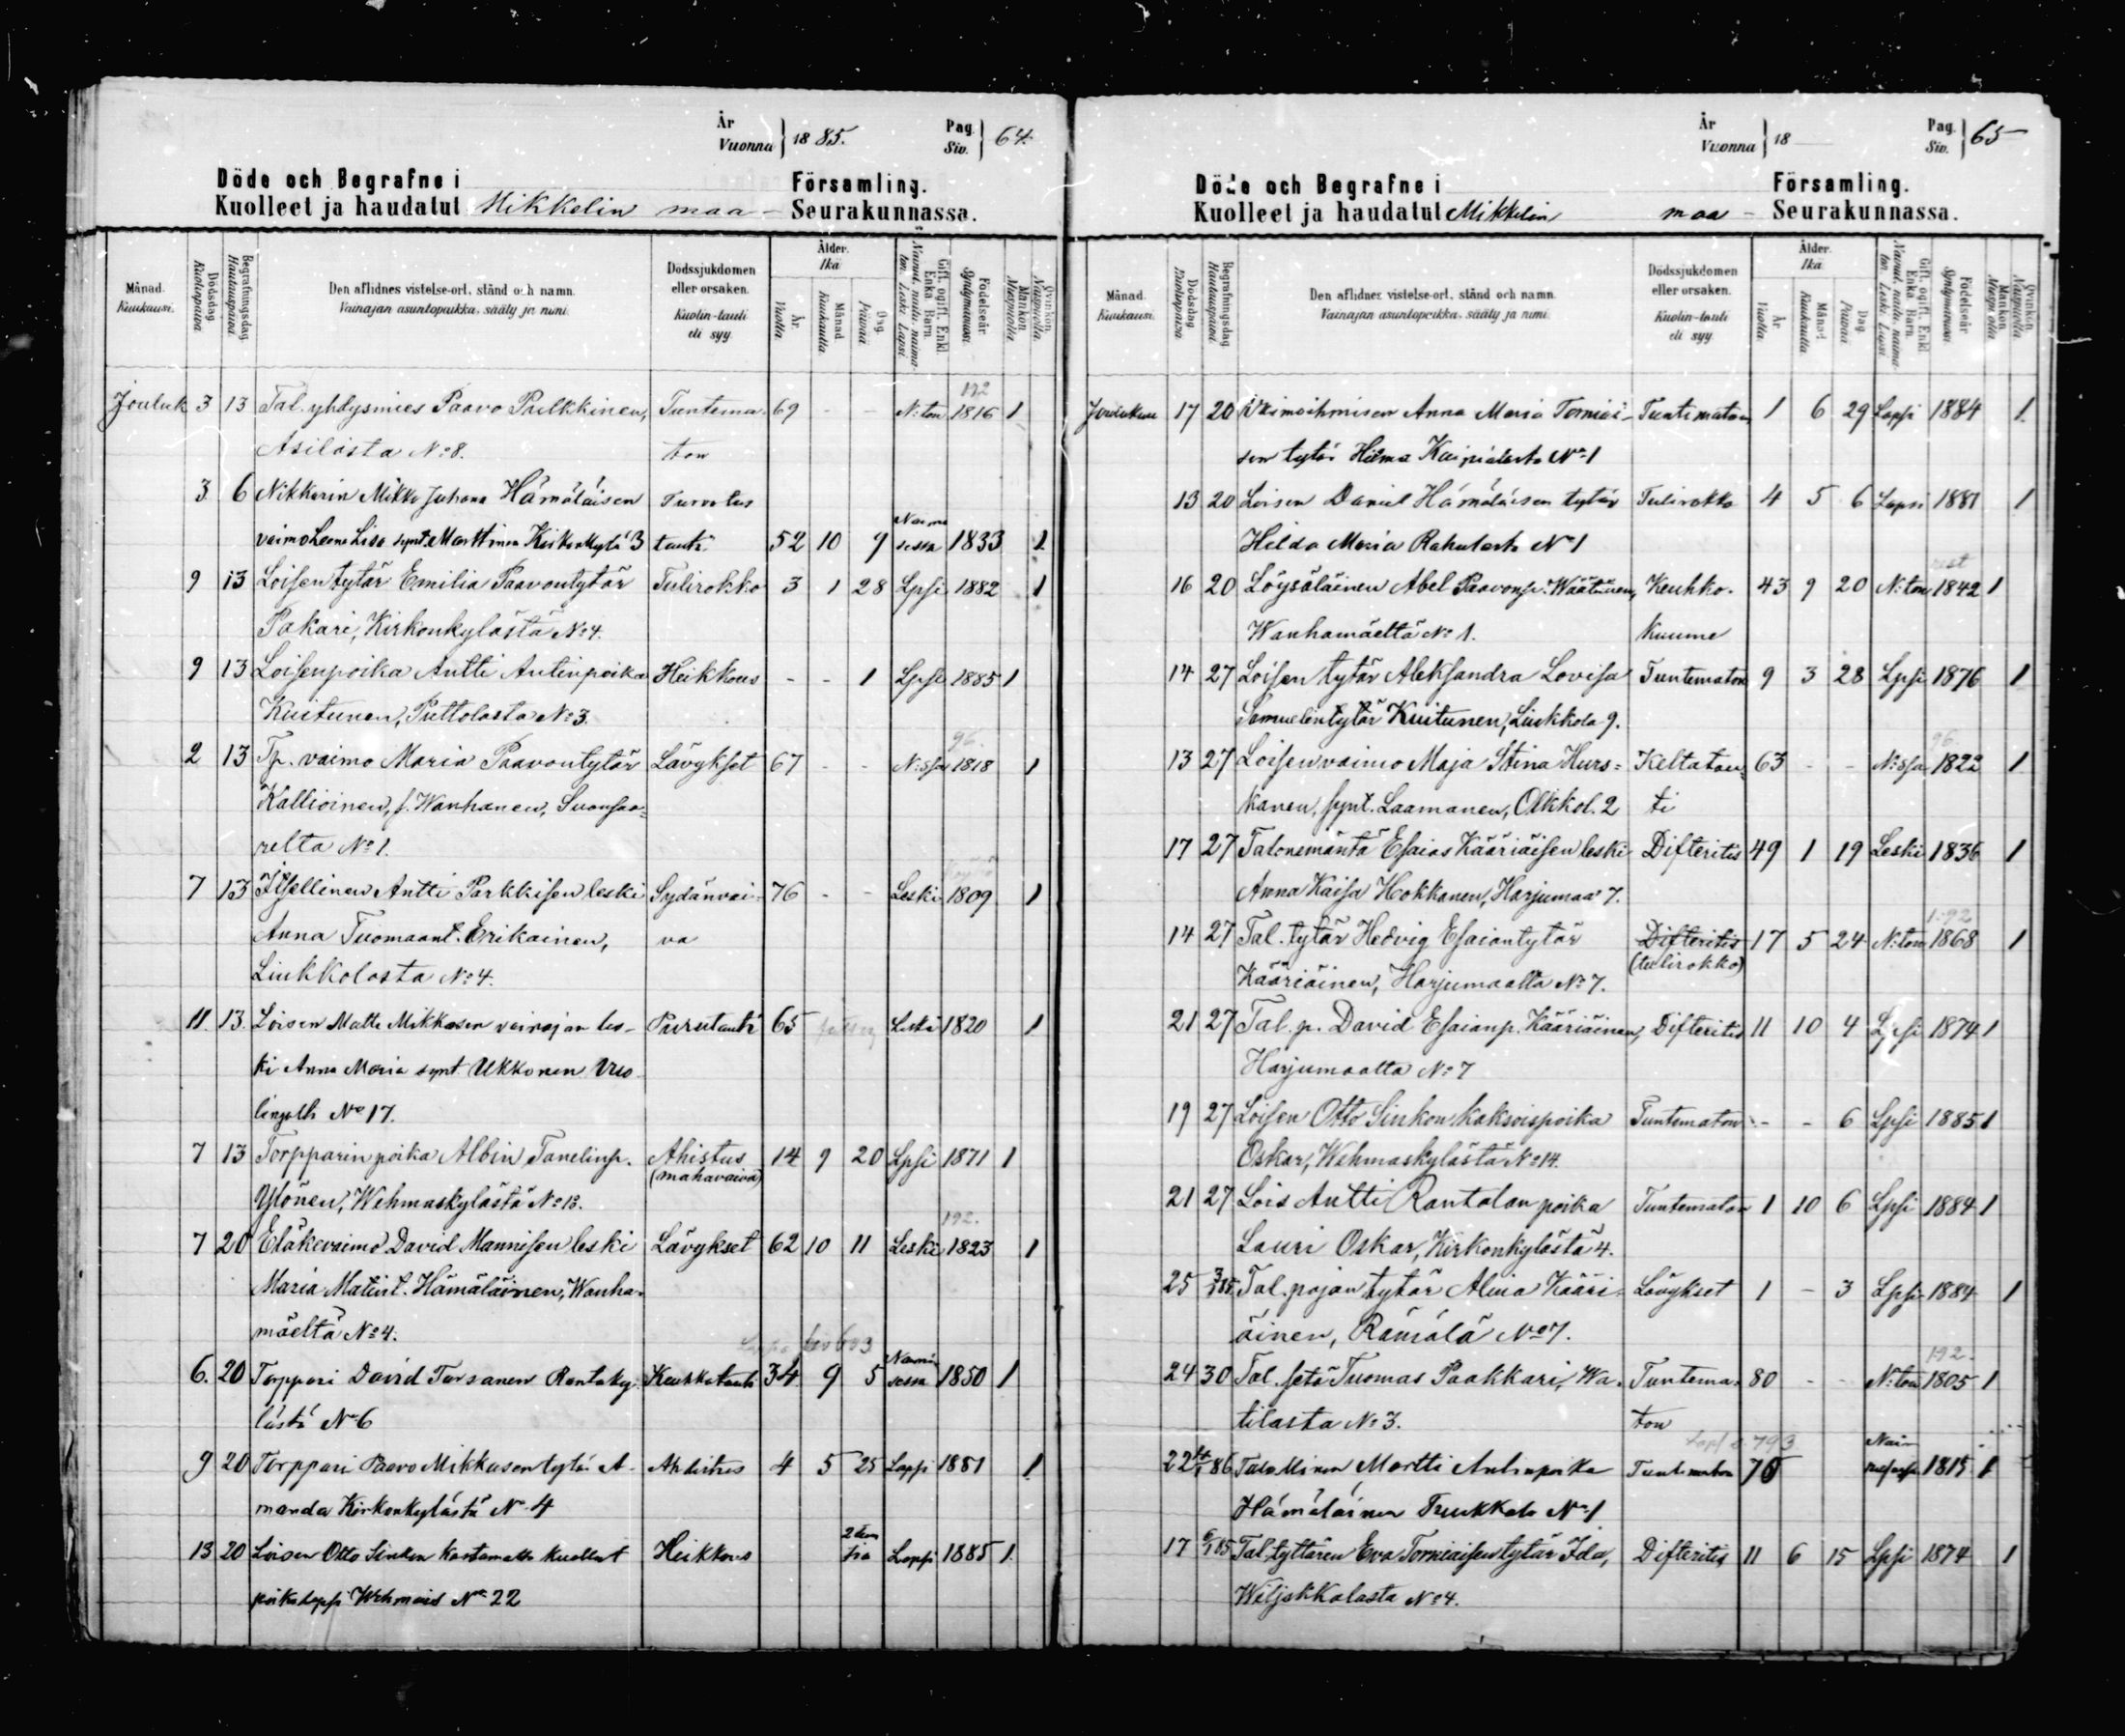 År
Vuonna } 1885.
Pag.
Siv. } 64.
Döde och Begrafne i Församling.
Kuolleet ja haudatut Mikkelin maa- Seurakunnassa.
Månad. Kuukausi.
Dödsdag Kuolinpäivä
Begrafningsdag Hautauspäivä
Den aflidnes vistelse-ort, stånd och namn.
Vainajan asuntopaikka, sääty ja nimi.
Dödssjukdomen eller orsaken.
Kuolin-tauti eli syy.
Ålder. Ikä
År. Vuotta. Månad Kuukautta. Dag. Päivää
Gift, ogift, Enkl. Enka. Barn.
Födelseår Syntymävuosi
Mankön. Miespuolia.
Qvinkön. Naispuolia.
192
Jouluk 3 13 Tal. yhtysmies Paavo Pulkkinen, Tuntema- 69 - - N:ton 1816 1
Asilasta No 8. ton
3 6 Nikkarin Mikko Juhana Hämäläisen Turvotus
vaimo Leena Lisa synt. Marttinen Kirkonkylä 3 tauti 52 10 9 Naimisessa 1833 1
9 13 Loisen tytär Emilia Paavontytär Tulirokko 3 1 28 Lpsi 1882 1
Pakari, Kirkonkylästä No 4.
9 13 Loisenpoika Antti Antinpoika Heikkous - - 1 Lpsi 1885 1
Kuitunen, Puttolasta No 3.
96.
2 13 Tp. vaimo Maria Paavontytär Lävykset 67 - - N:ssa 1818 1
Kallioinen, s. Wanhanen, Suonsaa-
relta No 1.
7 13 Itsellinen Antti Parkkisen leski Sydänvai- 76 - - Leski 1809 1
Anna Tuomaant. Erikainen, va
Liukkolasta No 4.
11. 13. Loisen Matti Mikkosen vainajan les- Purutauti 65 Leski 1820 1
ki Anna Maria synt Ukkonen
No 17.
7 13 Torpparin poika Albin Tanelinp. Ahistus 14 9 20 Lpsi 1871 1
(mahavaiva)
Ylönen, Wehmaskylästä No 13.
192.
7 20 Eläkevaimo David Mannisen leski Lävykset 62 10 11 Leski 1823 1
Maria Matint. Hämäläinen, Wanha-
mäeltä No 4.
6. 20 Torppari David Tarsanen Rantaky- Keuhkotauti 34 9 5 Naimisessa 1850 1
lästä No 6
9 20 Torppari Paavo Mikkosen tytär A- Ahdistus 4 5 25 Lapsi 1881 1
manda Kirkonkylästä No 4
13 20 Loisen Otto Sinkon kastamatta kuollut Heikkous 2 Lapsi 1885 1
poikalapsi Wehmais No 22
År
Vuonna } 18
Pag.
Siv. } 65
Döde och Begrafne i Församling.
Kuolleet ja haudatut Mikkelin maa- Seurakunnassa.
Månad. Kuukausi.
Dödsdag Kuolinpäivä
Begrafningsdag Hautauspäivä
Den aflidnes vistelse-ort, stånd och namn.
Vainajan asuntopaikka, sääty ja nimi.
Dödssjukdomen eller orsaken.
Kuolin-tauti eli syy.
Ålder. Ikä
År Vuotta. Månad Kuukautta. Dag. Päivää
Gift, ogift, Enkl. Enka. Barn.
Födelseår Syntymävuosi
Mankön. Miespuolia.
Qvinkön. Naispuolia.
Joulukuu 17 20 Vaimoihmisen Anna Maria Torniai- Tuntematon 1 6 29 Lapsi 1884 1
sen tytär Hilma No 1
13 20 Loisen Daniel Hämäläisen tytär Tulirokko 4 5 6 Lapsi 1881 1
Hilda Maria No 1
16 20 Löysäläinen Abel Paavonp. Wäätänen, Keuhko- 43 9 20 N:ton 1842 1
Wanhamäeltä No 1. kuume
14 27 Loisen tytär Aleksandra Lovisa Tuntematon 9 3 28 Lpsi 1876 1
Samuelintytär Kuitunen, Liukkola 9.
96
13 27 Loisenvaimo Maja Stina Hurs- Keltatau- 63 - - N:ssa 1822 1
kanen, synt. Laamanen, Olkkol. 2 ti
17 27 Talonemäntä Esaias Kääriäisen leski Difteritis 49 1 19 Leski 1836 1
Anna Kaisa Hokkanen, Harjumaa 7.
1.92
14 27 Tal. tytär Hedvig Esaiantytär Difteritis 17 5 24 N:ton 1868 1
(tulirokko)
Kääriäinen, Harjumaalta No 7.
21 27 Tal. p. David Esaianp. Kääriäinen, Difteritis 11 10 4 Lpsi 1874 1
Harjumaalta No 7
19 27 Loisen Otto Sinkon kaksoispoika Tuntematon - - 6 Lpsi 1885 1
Oskar, Wehmaskylästä No 14.
21 27 Lois Antti Rantalan poika Tuntematon 1 10 6 Lpsi 1884 1
Lauri Oskar, Kirkonkylästä 4.
25 Tal. pojan tytär Alina Kääri- Lävykset 1 - 3 Lpsi 1884 1
äinen, Rämälä No 7.
192.
24 30 Tal. setä Tuomas Paakkari, Wa- Tuntema- 80 - - N:ton 1805 1
tilasta No 3. ton
793
22 86 Talollinen Martti Antinpoika Tuntematon 70 1815 1
Hämäläinen No 1
17 Tal. tyttären Eva Torniaisen tytär Ida, Difteritis 11 6 15 Lpsi 1874 1
Wiljakkalasta No 4.